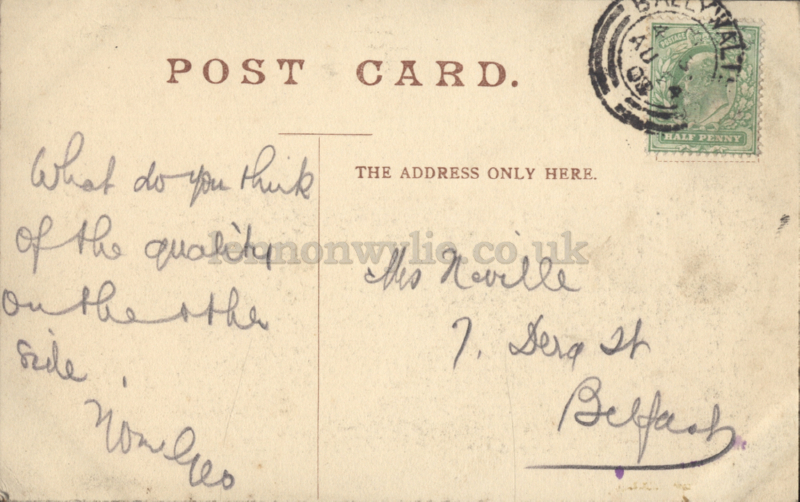 BALLYWALT
AU
08
POST CARD.
HALF PENNY
THE ADDRESS ONLY HERE.
What do you think
of the quality
on the other
side.
Geo
lennonwylie.co.uk
Mrs Neville
7. St
Belfast